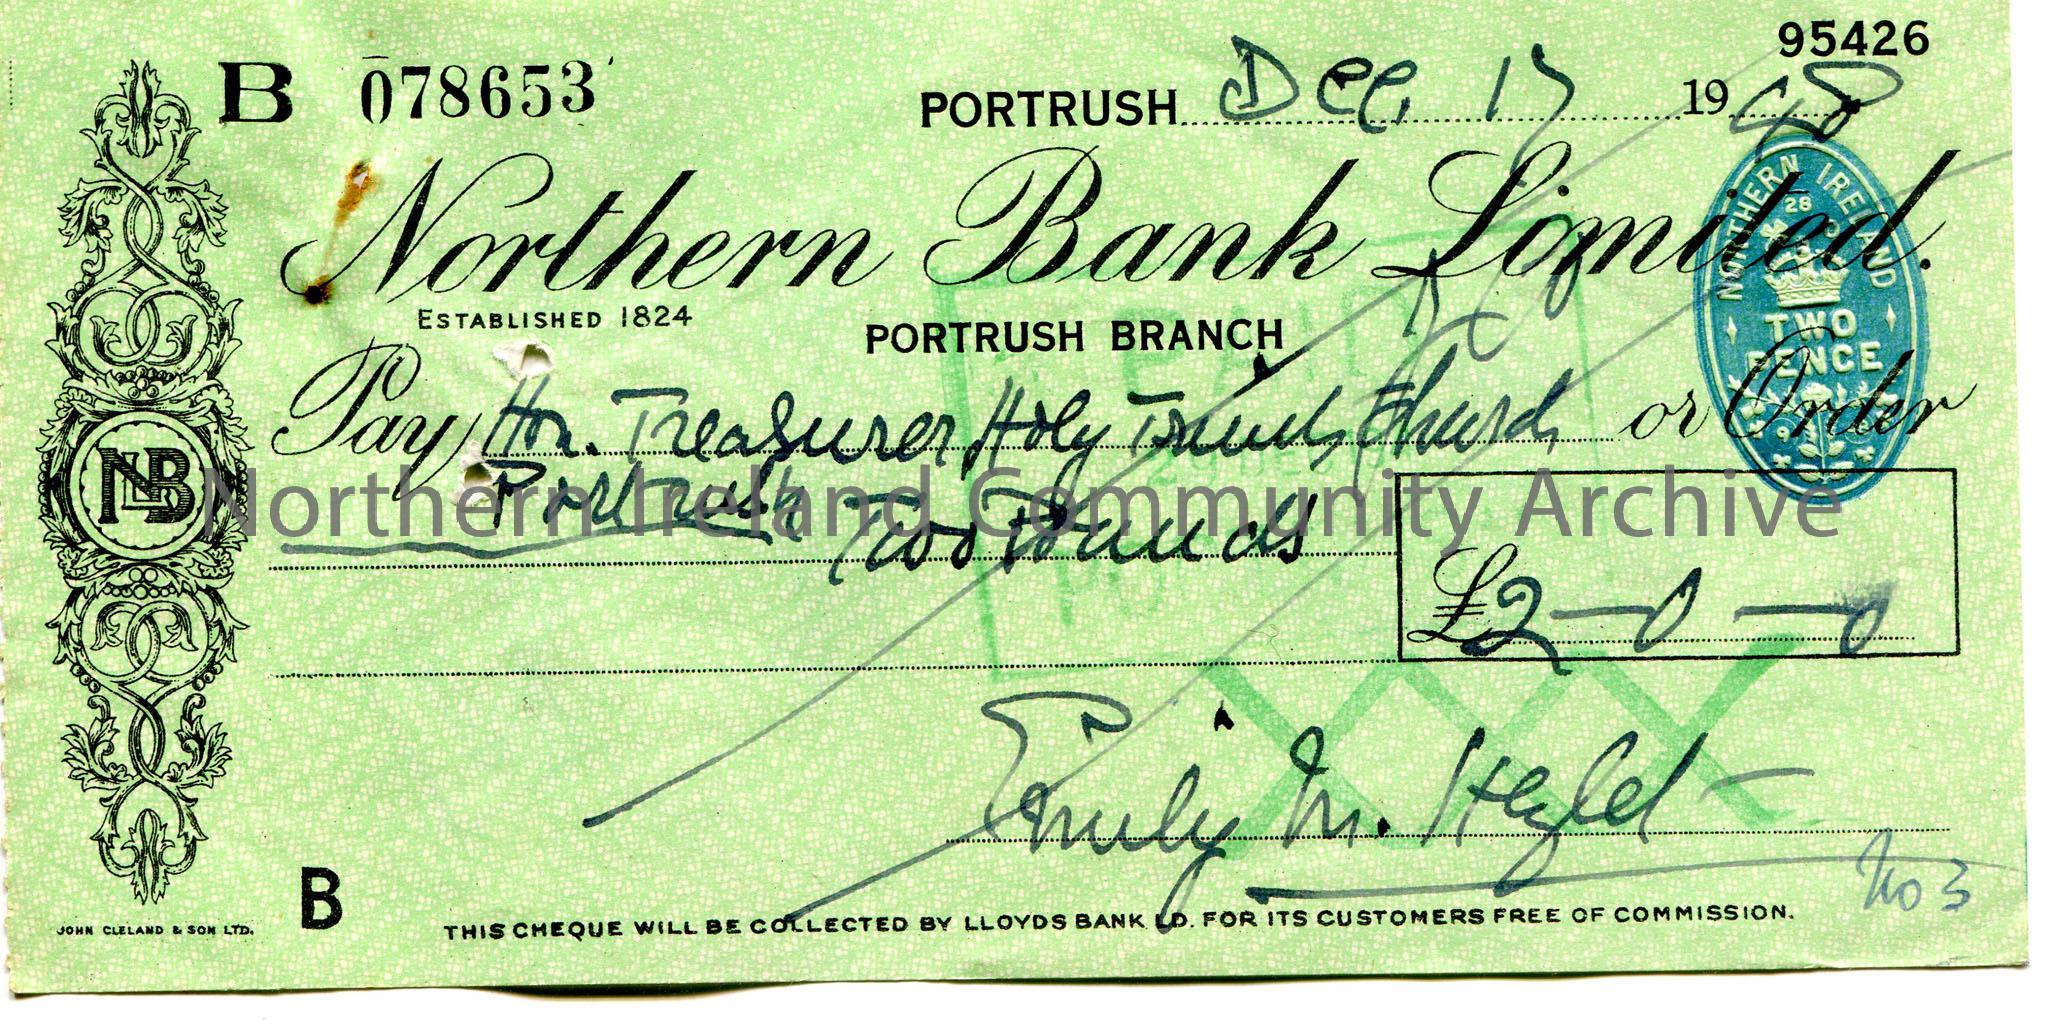 95426
B 078653
PORTRUSH Dec. 17 1948
Northern Bank Limited.
ESTABLISHED 1824
PORTRUSH BRANCH
NORTHERN IRELAND
28
TWO
PENCE
Pay Hon. Treasurer, Holy Trinity Church or Order
Portrush Two Pounds
NLB
Northern Ireland Community Archive
£2-0-0
PAID
Emily M.
No 3
B
JOHN CLELAND & SON LTD.
THIS CHEQUE WILL BE COLLECTED BY LLOYDS BANK LD. FOR ITS CUSTOMERS FREE OF COMMISSION.